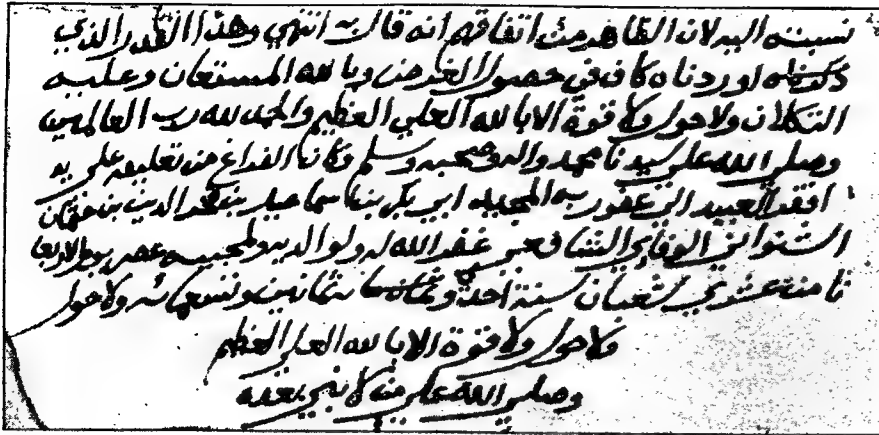 نسبته اليه لان الظاهر من اتفاقهم انه قال به انتهي وهذا القدر الذي
اوردناه كاف في حصول الغرض وبالله المستعان وعليه
التكلان ولا حول ولا قوة الا بالله العلي العظيم والحمد لله رب العالمين
وصلي الله علي سيدنا محمد واله وصحبه وسلم وكان الفراغ من تعليقه علي يد
افقر العبيد الي عفو ربه المجيد ابي بكر بن اسماعيل بن فخر الدين بن عثمان
الشنواني الوفائي الشافعي غفر الله له ولوالديه ولمحبيه عصر يوم الاربعا
ثامن عشري شعبان سنة احد وثمانين وتسعمائه ولا حول
ولا حول ولا قوة الا بالله العلي العظيم
وصلي الله علي من لا نبي بعده